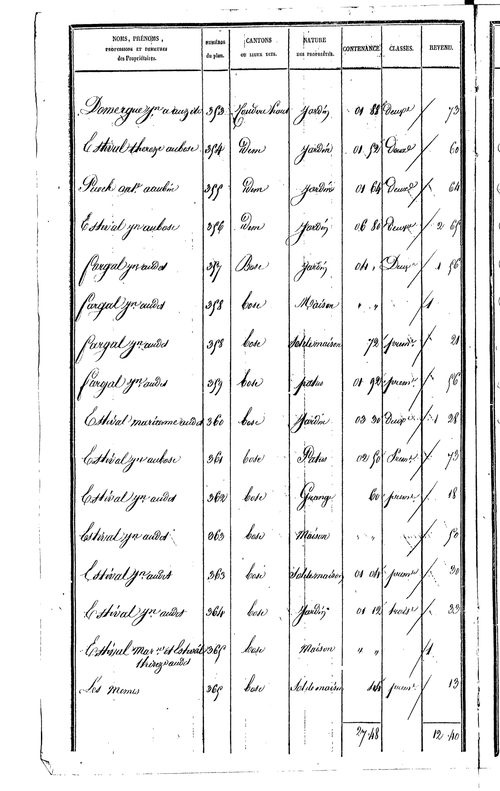 NOMS, PRÉNOMS, PROFESSIONS ET DEMEURES des Propriétaires. NUMÉROS du plan. CANTONS OU LIEUX DITS. NATURE DES PROPRIÉTÉS. CONTENANCE. CLASSES. REVENU.
Domergue jn a auzits 353 Jardin 01 88 deuxe 73
Estival thereze au bose 354 Idem Jardin 01 52 Deuxe 60
Puech ant. a aubin 355 Idem Jardin 01 64 Deuxe 64
Estival jn au bose 356 Idem Jardin 06 80 Deuxe 2 65
Fargal jn audet 357 Bose Jardin 04 " Deuxe 1 56
Fargal jn audet 358 bose Maison " "
Fargal jn audet 358 bose Sol de maison 72 prem. 21
Fargal jn audet 359 bose patus 01 92 prem. 56
Estival marianne audet 360 bose Jardin 03 30 Deuxe 1 28
Estival jn au bose 361 bose Patus 02 50 Prem. 73
Estival jn audet 362 bose Grange 60 prem. 18
Estival jn audet 363 bose Maison " " 50
Estival jn audet 363 bose Sol de maison 01 04 prem. 30
Estival jn audet 364 bose Jardin 01 12 trois. 33
Estival mar. et Estival 365 bose Maison " "
thereze audet
Les memes 365 bose Sol de maison 44 prem. 13
27 48 12 40